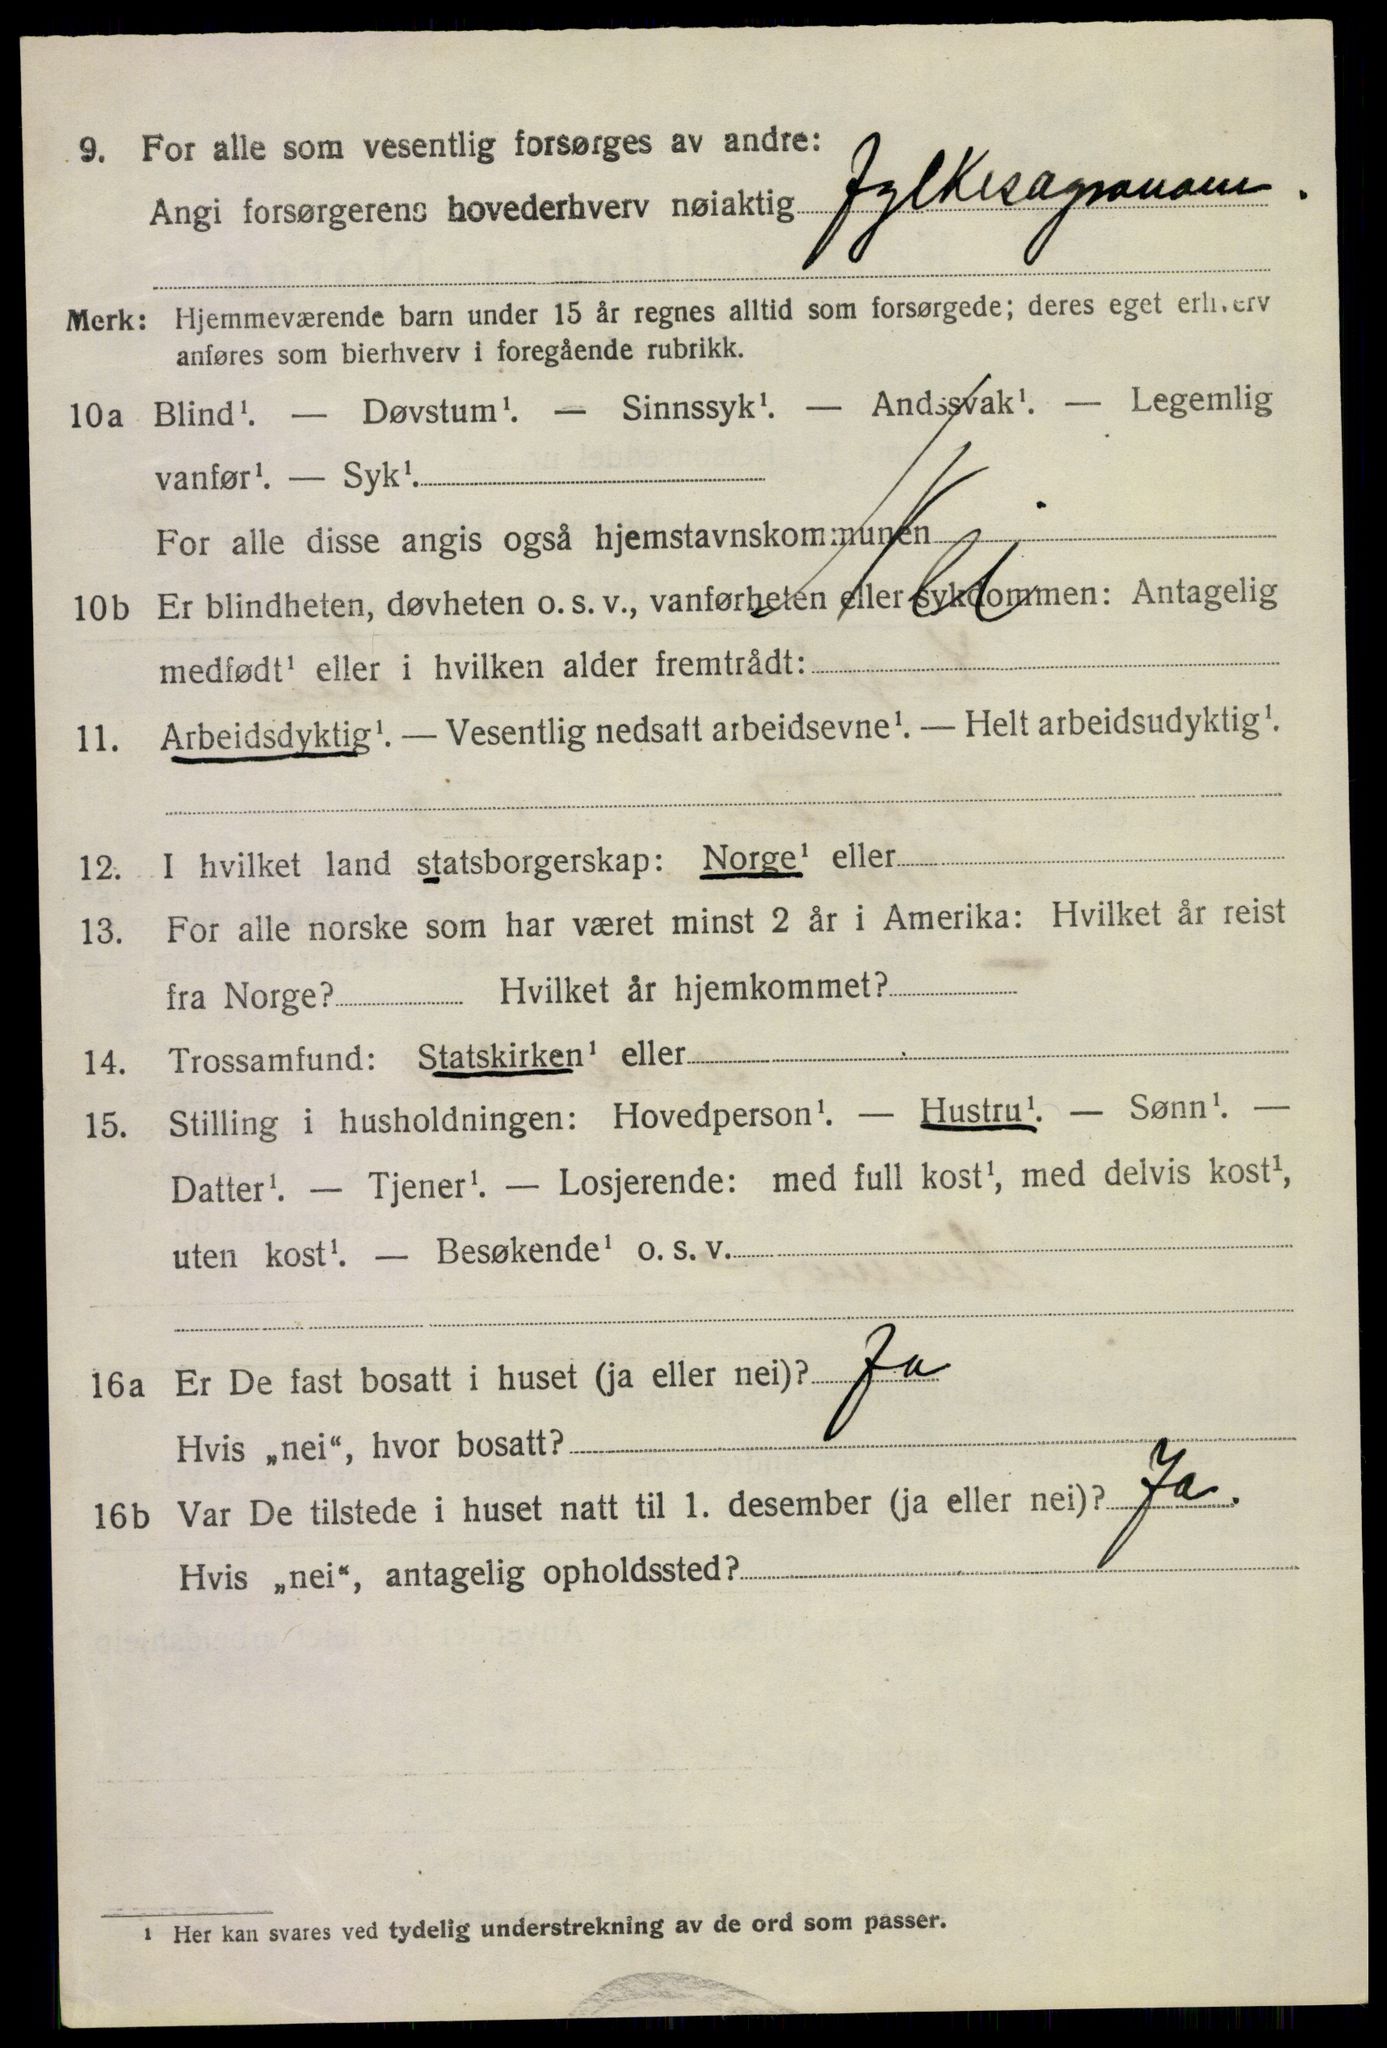 9. For alle som vesentlig forsørges av andre:
Angi forsørgerens hovederhverv nøiaktig Fylkesagronom.
Merk: Hjemmeværende barn under 15 år regnes alltid som forsørgede; deres eget erhverv
anføres som bierhverv i foregående rubrikk.
10a Blind¹. — Døvstum¹. — Sinnssyk¹. — Åndssvak¹. — Legemlig
vanfør¹. — Syk¹.
For alle disse angis også hjemstavnskommunen
Nei
10b Er blindheten, døvheten o. s. v., vanførheten eller sykdommen: Antagelig
medfødt¹ eller i hvilken alder fremtrådt:
11. Arbeidsdyktig¹. — Vesentlig nedsatt arbeidsevne¹. — Helt arbeidsudyktig¹.
12. I hvilket land statsborgerskap: Norge¹ eller
13. For alle norske som har været minst 2 år i Amerika: Hvilket år reist
fra Norge? Hvilket år hjemkommet?
14. Trossamfund: Statskirken¹ eller
15. Stilling i husholdningen: Hovedperson¹. — Hustru¹. — Sønn¹. —
Datter¹. — Tjener¹. — Losjerende: med full kost¹, med delvis kost¹,
uten kost¹. — Besøkende¹ o. s. v.
16a Er De fast bosatt i huset (ja eller nei)? Ja
Hvis „nei“, hvor bosatt?
16b Var De tilstede i huset natt til 1. desember (ja eller nei)? Ja.
Hvis „nei“, antagelig opholdssted?
¹ Her kan svares ved tydelig understrekning av de ord som passer.